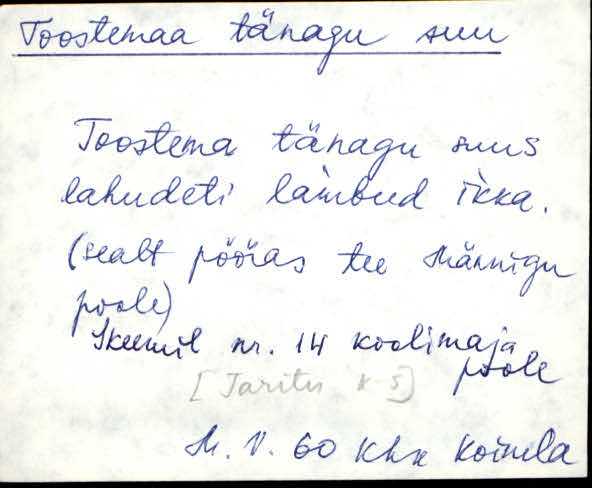 Toostemaa tänagu suu
Toostema tänagu suus
lahudeti lambud ikka.
(sealt pööras tee Männigu
poole)
Skeemil nr. 14 koolimaja
poole
[Taritu k-s]
M. V. 60 Khk Koimla